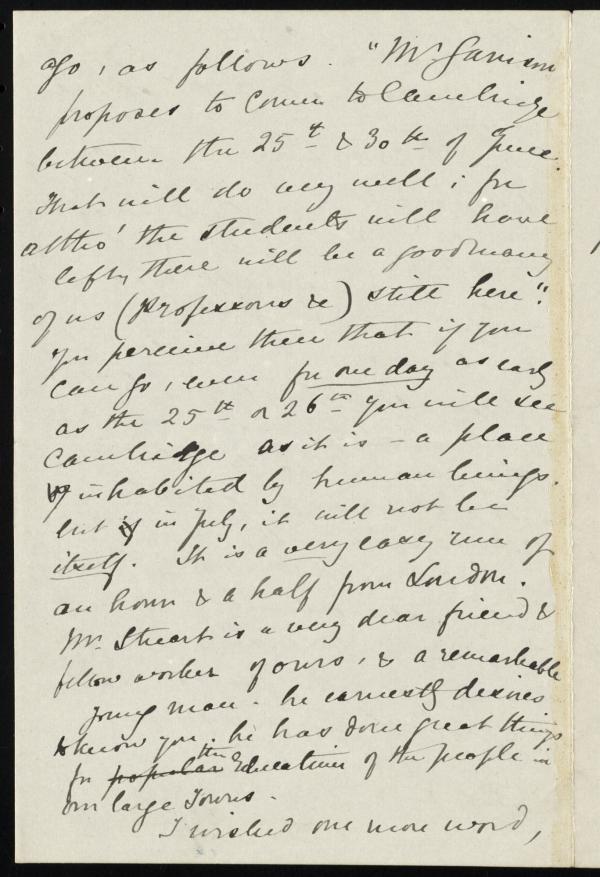 ago, as follows. "Mr Garrison
proposes to come to Cambridge
between the 25th & 30th of June.
That will do very well; for
altho' the students will have
left, there will be a good many
of us (Professors &c) still here".
You perceive then that if you
can go, even for one day as early
as the 25th or 26th you will see
Cambridge as it is - a place
inhabited by human beings.
but in July, it will not be
itself. It is a very easy run of
an hour & a half from London.
Mr. Stuart is a very dear friend &
fellow worker of ours, & a remarkable
young man. he earnestly desires
to know you. he has done great things
for popular the Education of the people in
our large Towns.
I wished one more word,